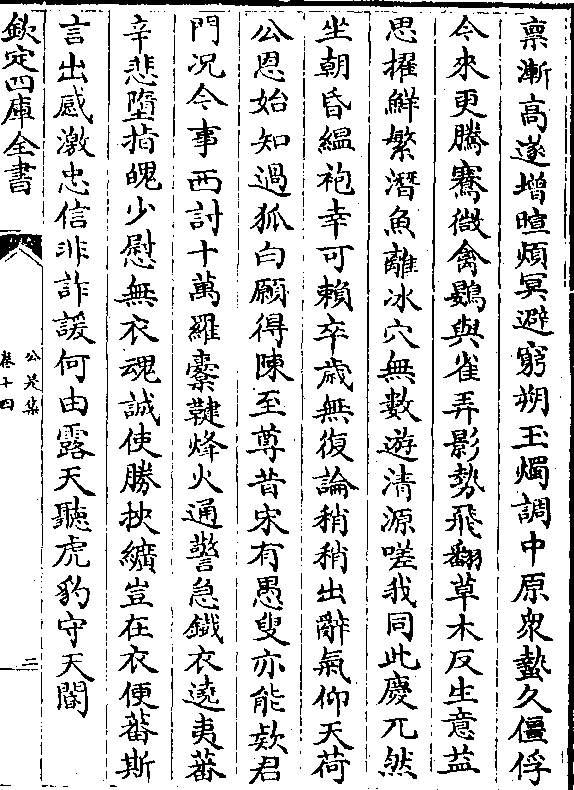 禀漸高遂增暄煩冥避窮朔玉燭調中原衆蟄久僵俘
今來更騰騫微禽鷃與雀弄影勢飛翻草木反生意益
思擢鮮繁潛魚離冰穴無數遊清源嗟我同此慶兀然
坐朝昏緼袍幸可賴卒歲無復論稍稍出辭氣仰天荷
公恩始知過狐白願得陳至尊昔宋有愚叟亦能欵君
門况今事西討十萬羅櫜鞬烽火通警急鐵衣遶夷蕃
辛悲墮指魄少慰無衣魂誠使勝挾纊豈在衣便蕃斯
言出感激忠信非詐諼何由露天聽虎豹守天閽
欽定四庫全書
公是集
卷十四
二